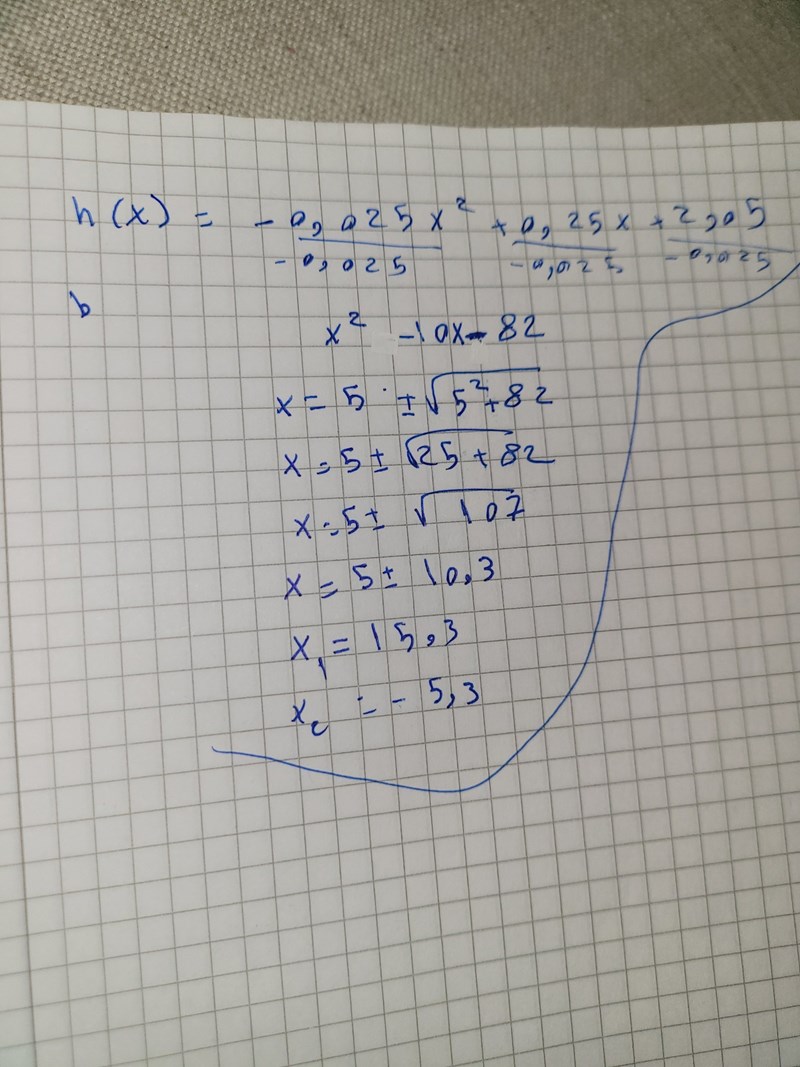 h(x) = -0,025x² + 0,25x + 2,05
-0,025 -0,025 -0,025
b
x² -10x-82
x = 5 ± √5²+82
x = 5 ± √25 + 82
x = 5 ± √107
x = 5 ± 10,3
x₁ = 15,3
x₂ = - 5,3